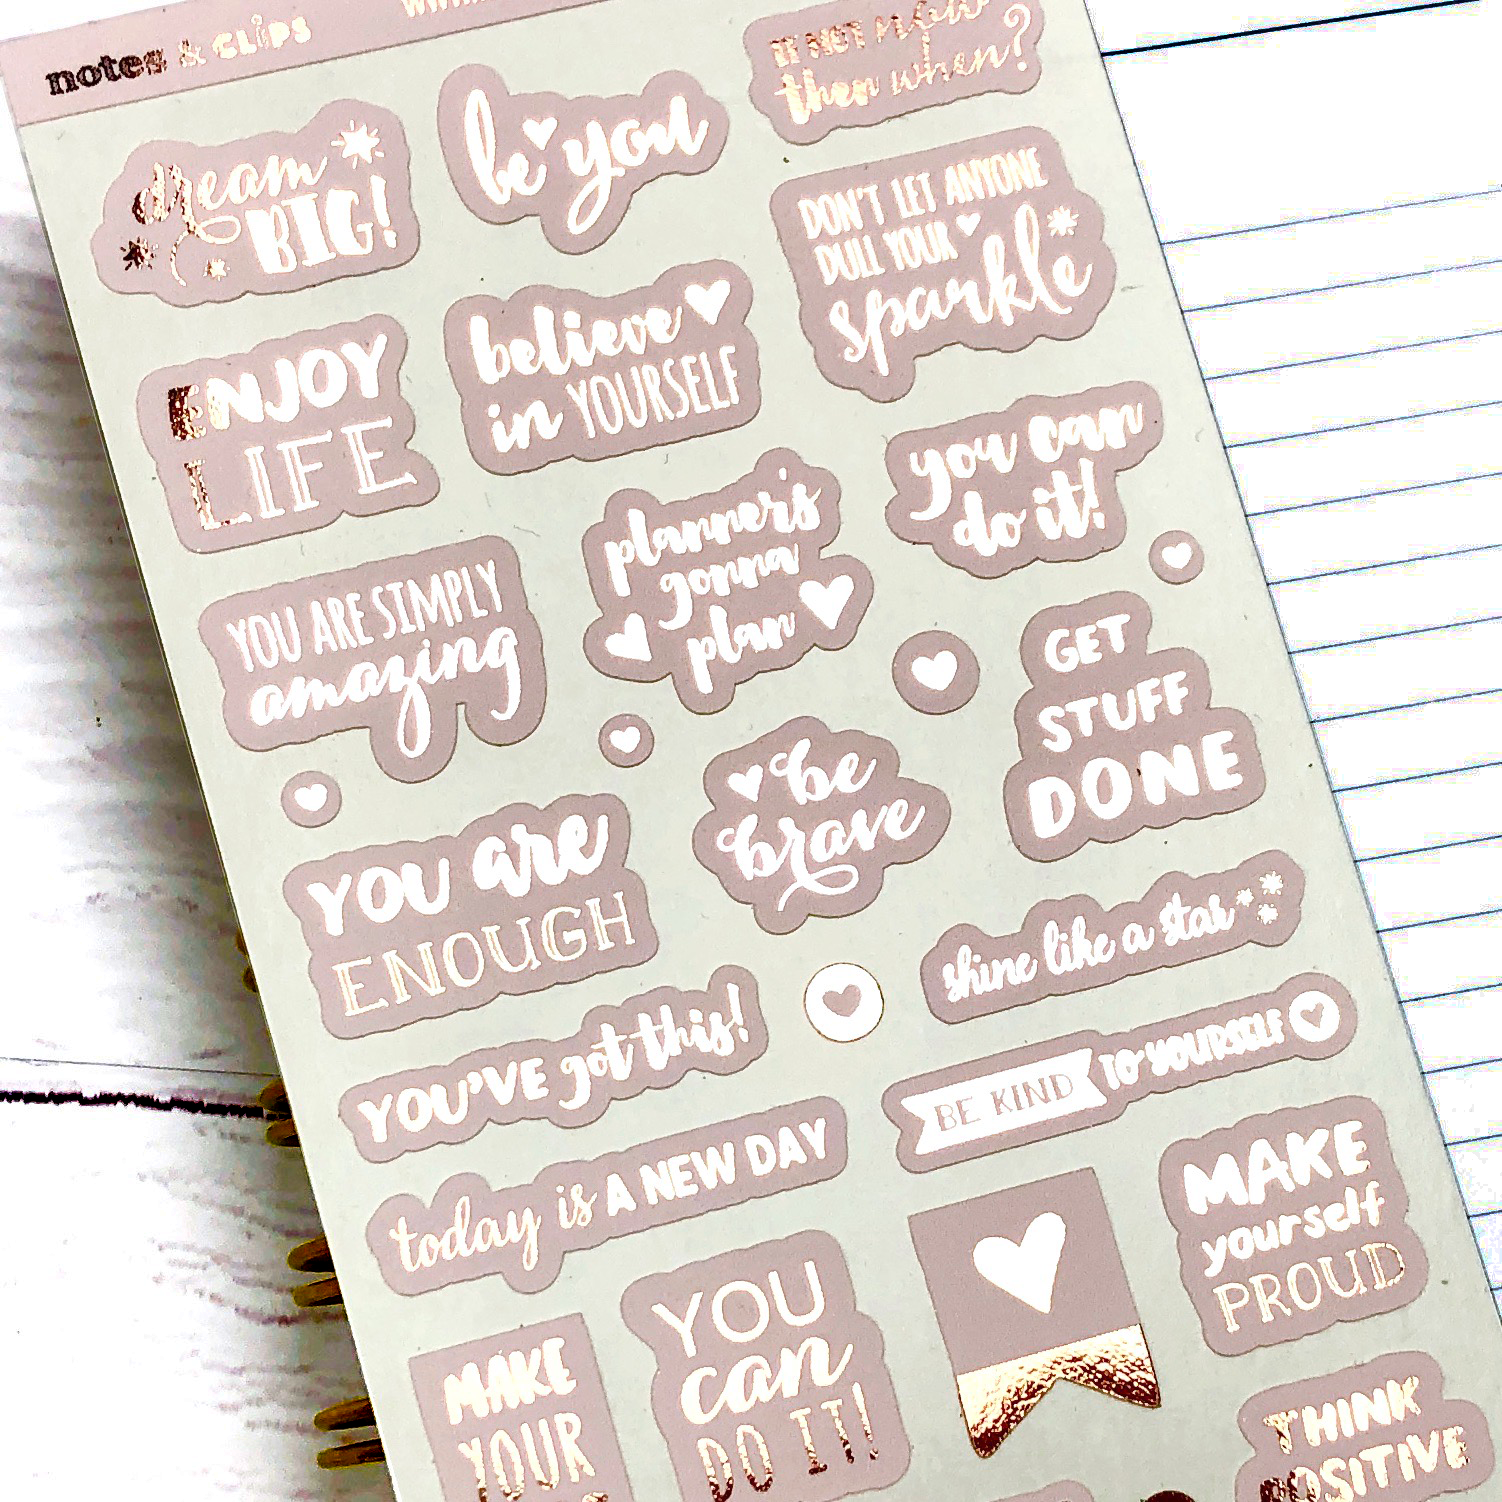 notes & CLIPS
dream
BIG!
be you
IF NOT now
then when?
DON'T LET ANYONE
DULL YOUR
sparkle
ENJOY
LIFE
believe
in YOURSELF
you can
do it!
YOU ARE SIMPLY
amazing
planner's
gonna
plan
GET
STUFF
DONE
be
brave
YOU are
ENOUGH
shine like a star
YOU'VE got this!
BE KIND TO YOURSELF
today is A NEW DAY
MAKE
yourself
PROUD
YOU
can
DO IT!
MAKE
YOUR
THINK
POSITIVE